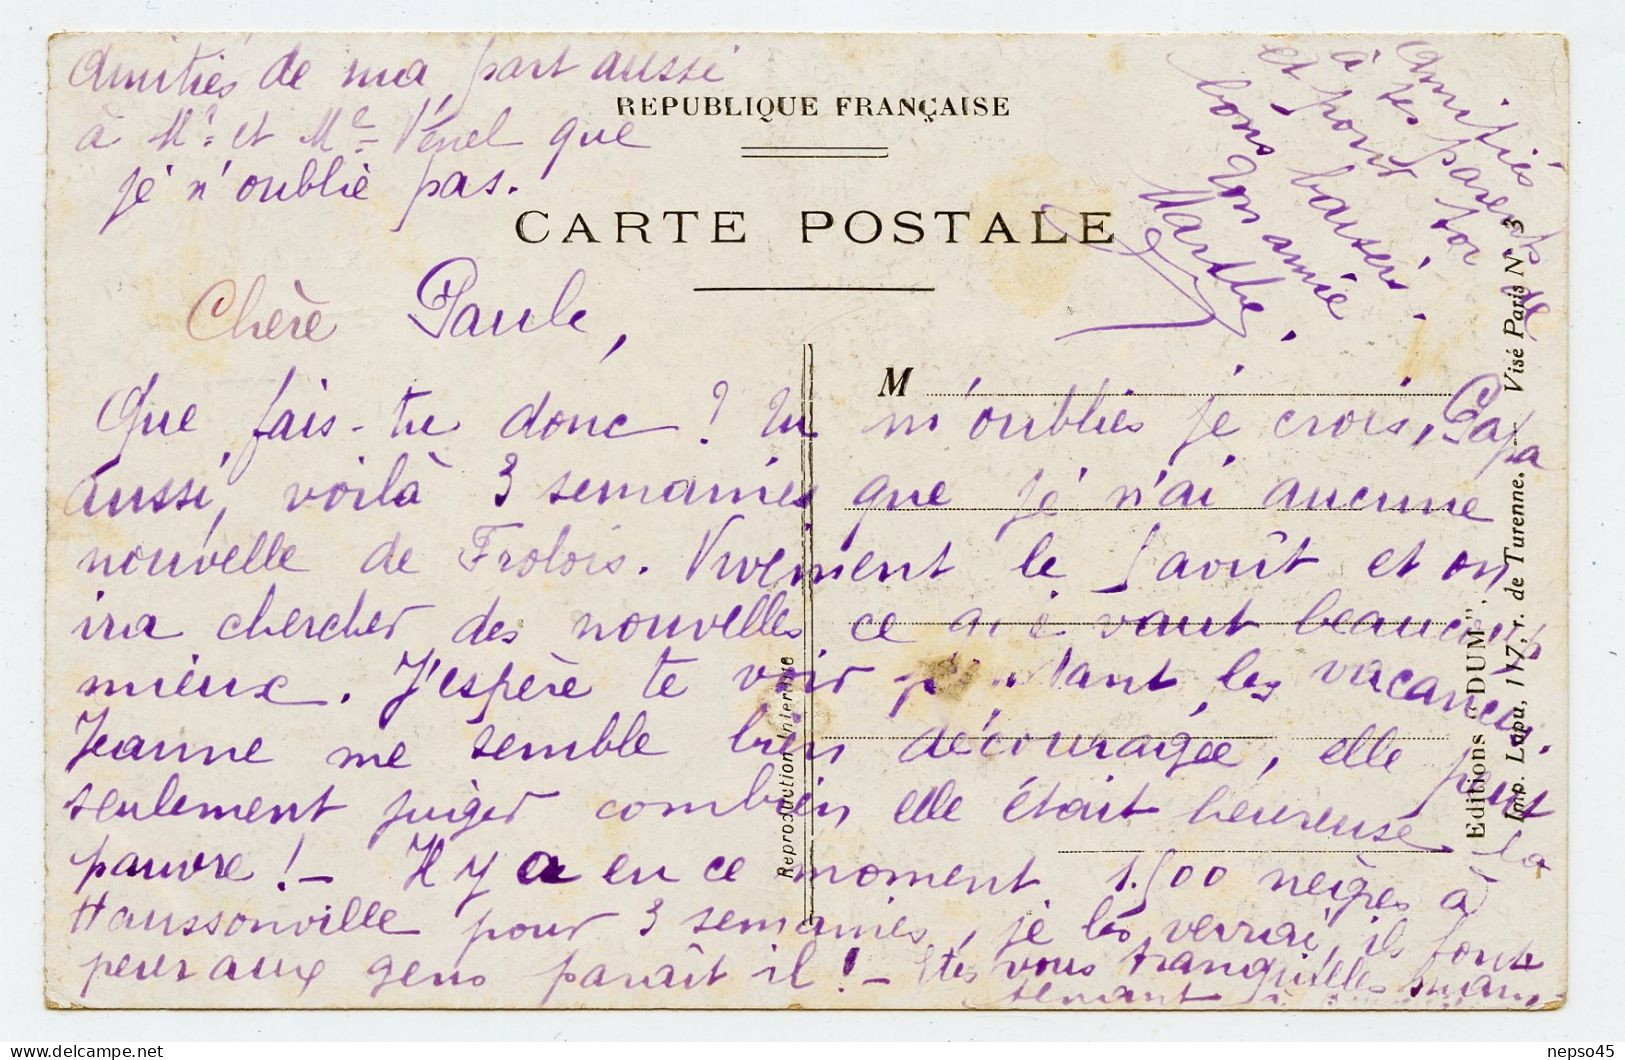 Amitiés de ma part aussi
à Mr et Me Vénel que
je n'oublie pas.
REPUBLIQUE FRANÇAISE
CARTE POSTALE
Chère Paule,
M
Que fais-tu donc ? Tu m'oublies je crois, Papa
aussi, voilà 3 semaines que je n'ai aucune
nouvelle de Frolois. Vivement le 5 août et on
ira chercher des nouvelles ce qui vaut beaucoup
mieux. J'espère te voir pendant les vacances.
Jeanne me semble bien découragée, elle peut
seulement juger combien elle était heureuse la
pauvre ! — Il y a en ce moment 1.500 nègres à
Haussonville pour 3 semaines, je les verrai, ils font
peur aux gens paraît il ! — Etes vous tranquilles main-
tenant
Amitiés
à tes parents de
et pour toi
bons baisers.
Ton amie
Marthe.
Reproduction Interdite
Editions "DUM".
Imp. Lapu, 117, r. de Turenne. — Visé Paris N° 3
nepso45